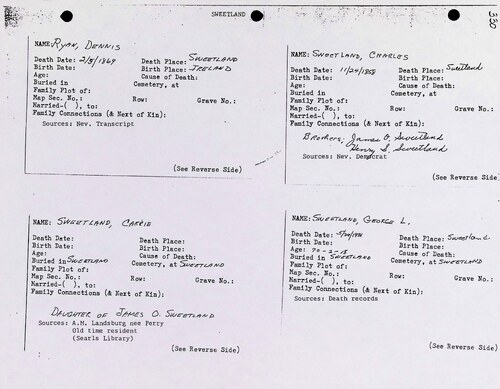 SWEETLAND
330
NAME: RYAN, DENNIS
Death Date: 2/8/1869 Death Place: SWEETLAND
Birth Date: Birth Place: IRELAND
Age: Cause of Death:
Buried in Cemetery, at
Family Plot of:
Map Sec. No.: Row: Grave No.:
Married-( ), to:
Family Connections (& Next of Kin):
Sources: Nev. Transcript
(See Reverse Side)
NAME: SWEETLAND, CHARLES
Death Date: 11/24/1858 Death Place: Sweetland
Birth Date: Birth Place:
Age: Cause of Death:
Buried in Cemetery, at
Family Plot of:
Map Sec. No.: Row: Grave No.:
Married-( ), to:
Family Connections (& Next of Kin):
Brothers: James O. Sweetland
Henry S. Sweetland
Sources: Nev. Democrat
(See Reverse Side)
NAME: SWEETLAND, CARRIE
Death Date: Death Place:
Birth Date: Birth Place:
Age: Cause of Death:
Buried in SWEETLAND Cemetery, at SWEETLAND
Family Plot of:
Map Sec. No.: Row: Grave No.:
Married-( ), to:
Family Connections (& Next of Kin):
DAUGHTER OF JAMES O. SWEETLAND
Sources: A.M. Landsburg nee Perry
Old time resident
(Searls Library)
(See Reverse Side)
NAME: SWEETLAND, GEORGE L.
Death Date: Death Place: SWEETLAND
Birth Date: Birth Place:
Age: 20-2-18 Cause of Death:
Buried in SWEETLAND Cemetery, at SWEETLAND
Family Plot of:
Map Sec. No.: Row: Grave No.:
Married-( ), to:
Family Connections (& Next of Kin):
Sources: Death records
(See Reverse Side)